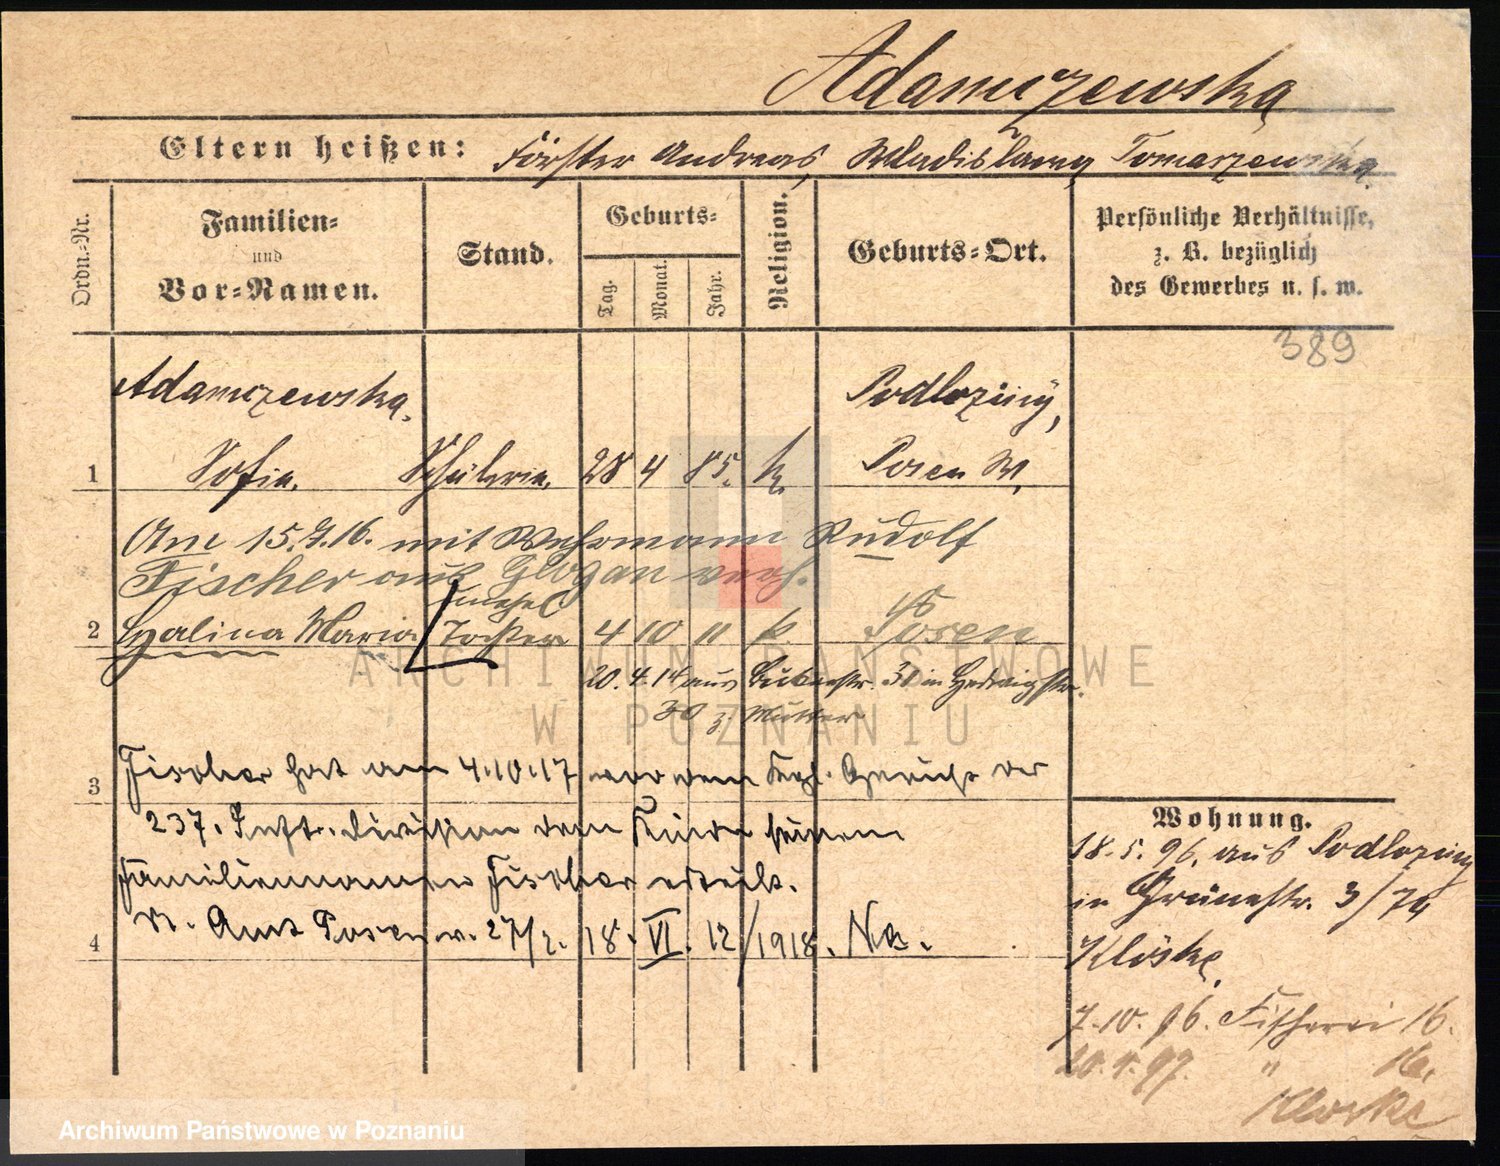 Adamczewska
Eltern heißen: Förster Andreas, Wladislawa Tomaszewska.
Ordn.-Nr.
Familien-
und
Vor-Namen.
Stand.
Geburts-
Tag.
Monat.
Jahr.
Religion.
Geburts-Ort.
Persönliche Verhältnisse,
z. B. bezüglich
des Gewerbes u. s. w.
389
Adamczewska, Podloziny,
1 Sofia. Schülerin. 28 4 85. k. Posen W.
Am 15.7.16. mit Wehrmann Rudolf
Fischer aus Glogau verh.
unehel.
2 Halina Maria Tochter 4 10 11 k. Posen
20.4.14 aus 31 in Hedwigstr.
30 z. Mutter
Fischer hat am 4.10.17 vor dem Gericht der
3
237. Inftr. Division dem Kinde seinen
Familiennamen Fischer erteilt.
4 St. Amt Posen v. 27/2. 18. VI. 12/1918. Na.
Wohnung.
18.5.96. aus Podloziny
in Grünestr. 3/74
Klöske,
7.10.96. Fischerei 16.
20.4.97. " 16.
Kloske
ARCHIWUM PAŃSTWOWE
W POZNANIU
Archiwum Państwowe w Poznaniu